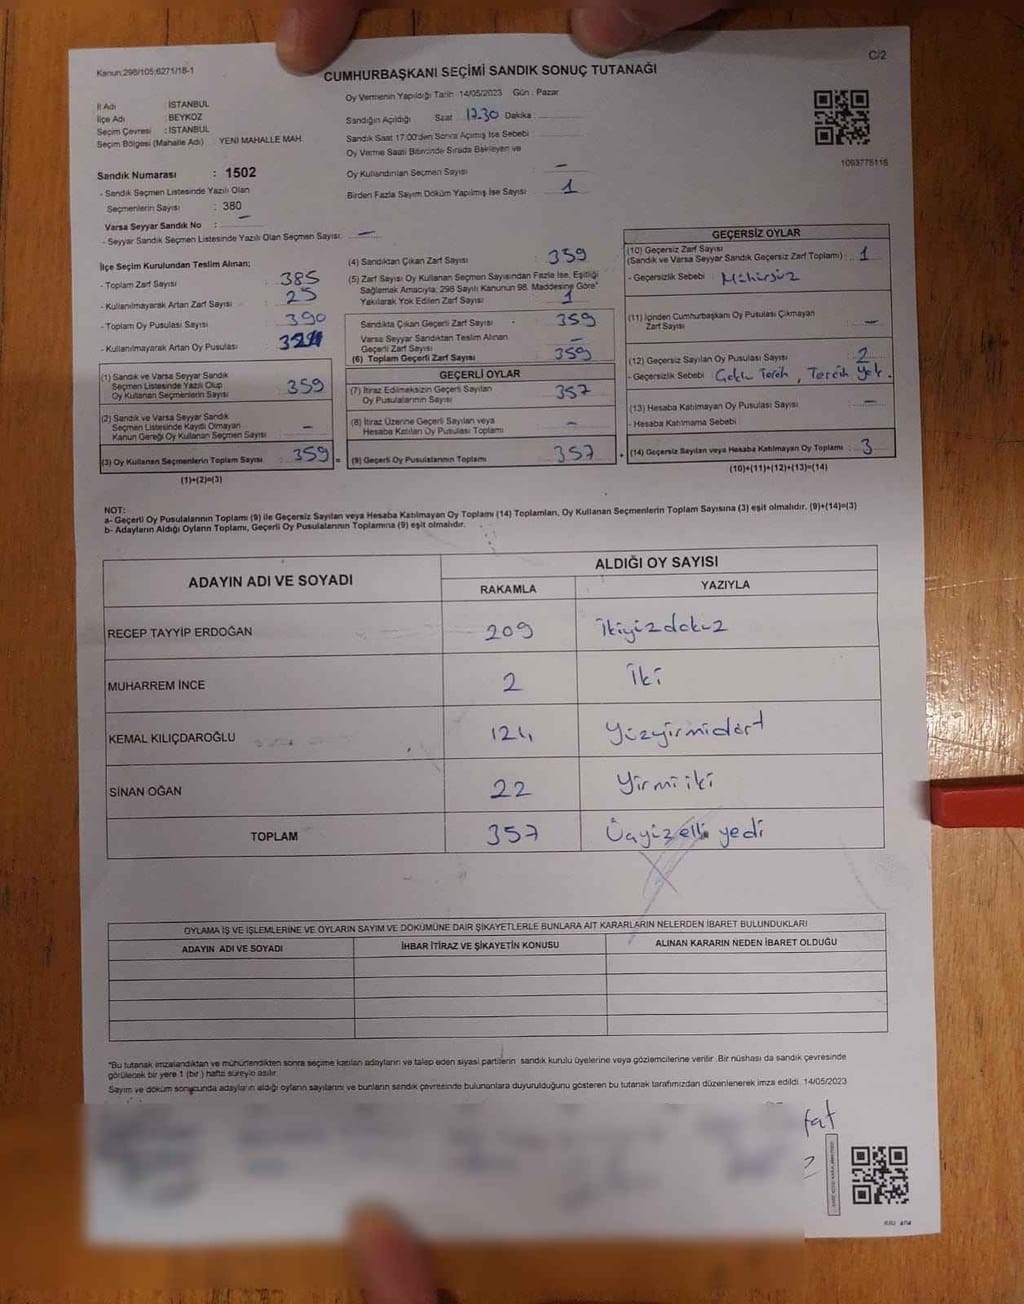 C/2
Kanun:298/105;6271/18-1
CUMHURBAŞKANI SEÇİMİ SANDIK SONUÇ TUTANAĞI
İl Adı : İSTANBUL
İlçe Adı : BEYKOZ
Seçim Çevresi : İSTANBUL
Seçim Bölgesi (Mahalle Adı) : YENİ MAHALLE MAH.
Sandık Numarası : 1502
- Sandık Seçmen Listesinde Yazılı Olan
Seçmenlerin Sayısı : 380
Varsa Seyyar Sandık No : —
- Seyyar Sandık Seçmen Listesinde Yazılı Olan Seçmen Sayısı: —
Oy Vermenin Yapıldığı Tarih :14/05/2023 Gün : Pazar
Sandığın Açıldığı Saat 17.30 Dakika :
Sandık Saat 17:00'den Sonra Açımış İse Sebebi :
Oy Verme Saati Bitiminde Sırada Bekleyen ve
Oy Kullandırılan Seçmen Sayısı : —
Birden Fazla Sayım Döküm Yapılmış İse Sayısı : 1
1093775115
İlçe Seçim Kurulundan Teslim Alınan;
- Toplam Zarf Sayısı : 385
- Kullanılmayarak Artan Zarf Sayısı : 25
- Toplam Oy Pusulası Sayısı : 390
- Kullanılmayarak Artan Oy Pusulası :
(1) Sandık ve Varsa Seyyar Sandık
Seçmen Listesinde Yazılı Olup
Oy Kullanan Seçmenlerin Sayısı : 359
(2) Sandık ve Varsa Seyyar Sandık
Seçmen Listesinde Kayıtlı Olmayan
Kanun Gereği Oy Kullanan Seçmen Sayısı : —
(3) Oy Kullanan Seçmenlerin Toplam Sayısı : 359 =
(1)+(2)=(3)
(4) Sandıktan Çıkan Zarf Sayısı : 359
(5) Zarf Sayısı Oy Kullanan Seçmen Sayısından Fazla İse, Eşitliği
Sağlamak Amacıyla, 298 Sayılı Kanunun 98. Maddesine Göre"
Yakılarak Yok Edilen Zarf Sayısı : 1
Sandıkta Çıkan Geçerli Zarf Sayısı : 359
Varsa Seyyar Sandıktan Teslim Alınan
Geçerli Zarf Sayısı : —
(6) Toplam Geçerli Zarf Sayısı : 359
GEÇERLİ OYLAR
(7) İtiraz Edilmeksizin Geçerli Sayılan
Oy Pusulalarının Sayısı : 357
(8) İtiraz Üzerine Geçerli Sayılan veya
Hesaba Katılan Oy Pusulası Toplamı : —
(9) Geçerli Oy Pusulalarının Toplamı : 357 +
GEÇERSİZ OYLAR
(10) Geçersiz Zarf Sayısı
(Sandık ve Varsa Seyyar Sandık Geçersiz Zarf Toplamı) : 1
- Geçersizlik Sebebi : Mühürsüz
(11) İçinden Cumhurbaşkanı Oy Pusulası Çıkmayan
Zarf Sayısı : —
(12) Geçersiz Sayılan Oy Pusulası Sayısı : 2
- Geçersizlik Sebebi : Tercih, Tercih Yok.
(13) Hesaba Katılmayan Oy Pusulası Sayısı : —
- Hesaba Katılmama Sebebi :
(14) Geçersiz Sayılan veya Hesaba Katılmayan Oy Toplamı : 3
(10)+(11)+(12)+(13)=(14)
NOT:
a- Geçerli Oy Pusulalarının Toplamı (9) ile Geçersiz Sayılan veya Hesaba Katılmayan Oy Toplamı (14) Toplamları, Oy Kullanan Seçmenlerin Toplam Sayısına (3) eşit olmalıdır. (9)+(14)=(3)
b- Adayların Aldığı Oyların Toplamı, Geçerli Oy Pusulalarının Toplamına (9) eşit olmalıdır.
ADAYIN ADI VE SOYADI ALDIĞI OY SAYISI
RAKAMLA YAZIYLA
RECEP TAYYİP ERDOĞAN 209 ikiyüzdokuz
MUHARREM İNCE 2 İki
KEMAL KILIÇDAROĞLU 124 yüzyirmidört
SİNAN OĞAN 22 Yirmiiki
TOPLAM 357 Üçyüzelli yedi
OYLAMA İŞ VE İŞLEMLERİNE VE OYLARIN SAYIM VE DÖKÜMÜNE DAİR ŞİKAYETLERLE BUNLARA AİT KARARLARIN NELERDEN İBARET BULUNDUKLARI
ADAYIN ADI VE SOYADI İHBAR İTİRAZ VE ŞİKAYETİN KONUSU ALINAN KARARIN NEDEN İBARET OLDUĞU
"Bu tutanak imzalandıktan ve mühürlendikten sonra seçime katılan adayların ve talep eden siyasi partilerin sandık kurulu üyelerine veya gözlemcilerine verilir. Bir nüshası da sandık çevresinde
görülecek bir yere 1 (bir ) hafta süreyle asılır.
Sayım ve döküm sonucunda adayların aldığı oyların sayılarını ve bunların sandık çevresinde bulunanlara duyurulduğunu gösteren bu tutanak tarafımızdan düzenlenerek imza edildi. 14/05/2023
fat